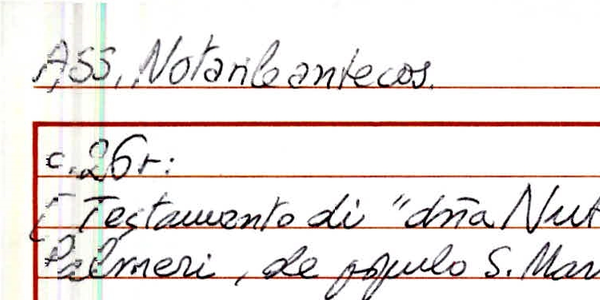 ASS, Notarile antecos.
c. 26r:
[ Testamento di "dña Nut
Palmeri, de populo S. Mar